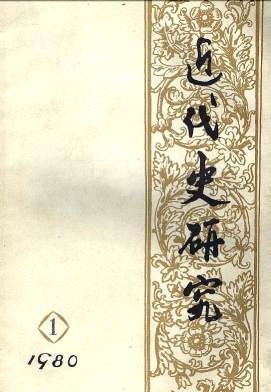 近代史研究
1
1980